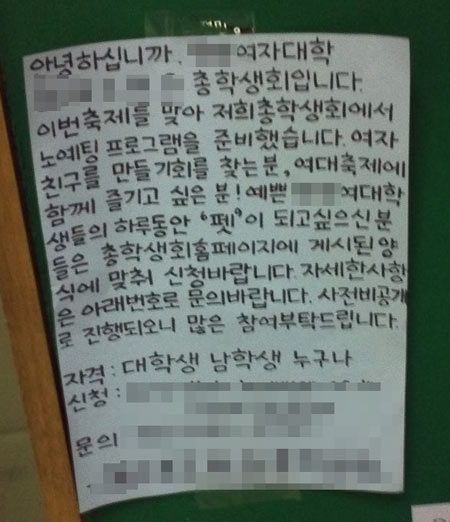 안녕하십니까. 여자대학
총학생회입니다.
이번축제를 맞아 저희총학생회에서
노예팅 프로그램을 준비했습니다. 여자
친구를 만들기회를 찾는분, 여대축제에
함께 즐기고 싶은 분! 예쁜 여대학
생들의 하루동안 '펫'이 되고싶으신 분
들은 총학생회홈페이지에 게시된 양
식에 맞춰 신청바랍니다. 자세한사항
은 아래번호로 문의바랍니다. 사전비공개
로 진행되오니 많은 참여부탁드립니다.
자격 : 대학생 남학생 누구나
신청 :
문의